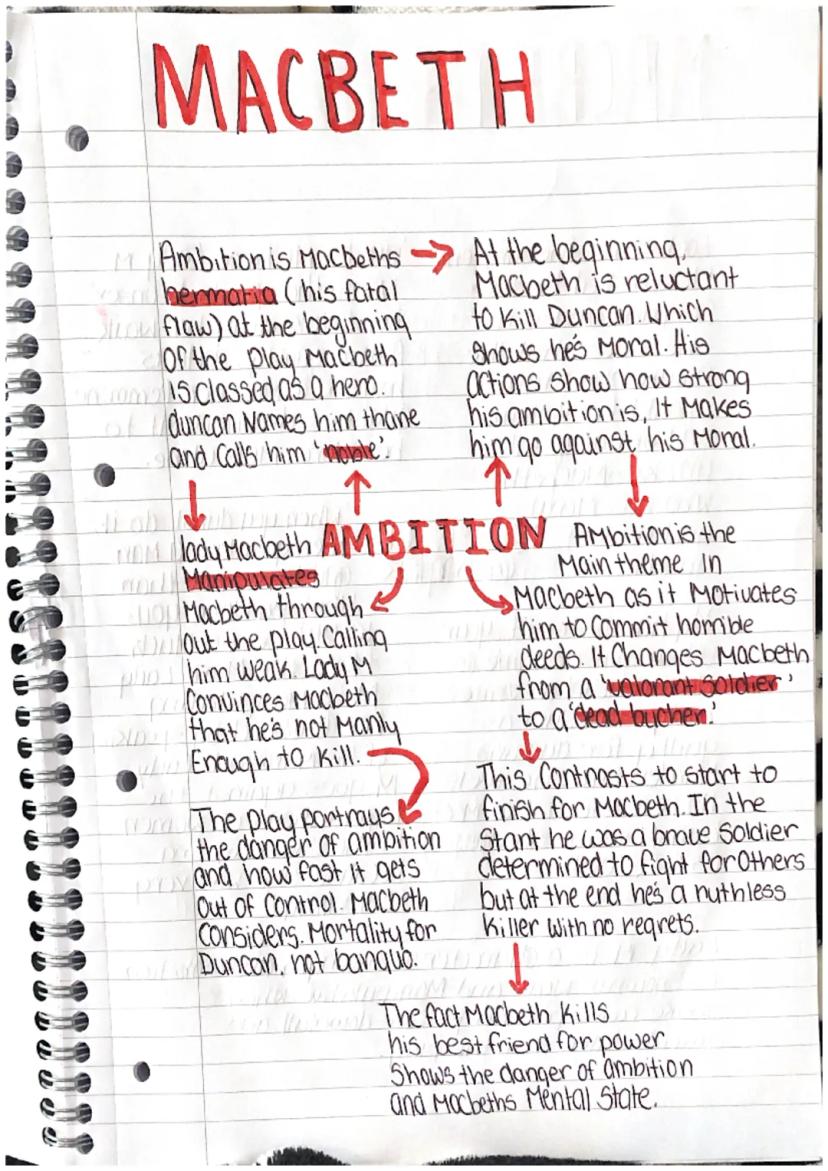 MACBETH
Ambition is Macbeths
hermatia (his fatal
flaw) at the beginning
of the play Macbeth
is classed as a hero.
duncan Names him thane
and Calls him 'noble'.
At the beginning,
Macbeth is reluctant
to kill Duncan. Which
shows he's Moral. His
actions show how strong
his ambition is, It Makes
him go against his Moral.
AMBITION
lady Macbeth
Manipulates
Macbeth through
out the play. Calling
him weak. Lady M
Convinces Macbeth
that he's not Manly
Enough to kill.
Ambition is the
Main theme In
Macbeth as it Motivates
him to Commit horrible
deeds. It Changes Macbeth
from a 'valorant soldier'
to a 'dead bucher.'
The play portrays
the danger of ambition
and how fast it gets
out of Control. Macbeth
Considers. Mortality for
Duncan, not banquo.
This Contrasts to start to
finish for Macbeth. In the
Start he was a brave soldier
determined to fight for others
but at the end he's a ruthless
killer with no regrets.
The fact Macbeth kills
his best friend for power
Shows the danger of ambition
and Macbeths Mental State.